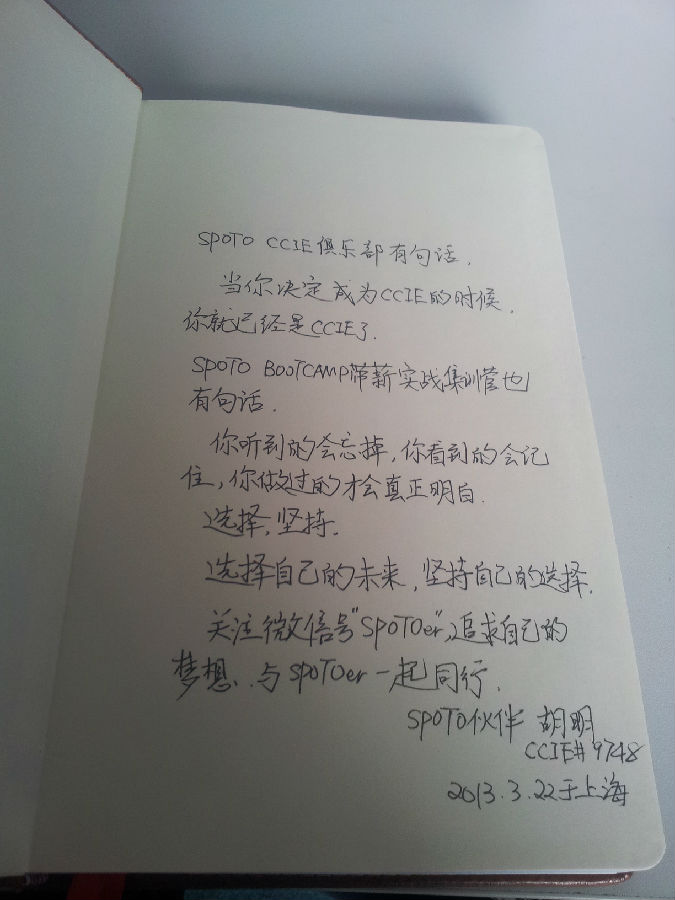 SPOTO CCIE俱乐部有句话.
当你决定成为CCIE的时候.
你就已经是CCIE了.
SPOTO BOOTCAMP带薪实战集训营也
有句话.
你听到的会忘掉,你看到的会记
住,你做过的才会真正明白.
选择,坚持.
选择自己的未来,坚持自己的选择.
关注微信号"SPOTOer",追求自己的
梦想、与SPOTOer一起同行.
SPOTO伙伴 胡明
CCIE# 9748
2013.3.22于上海